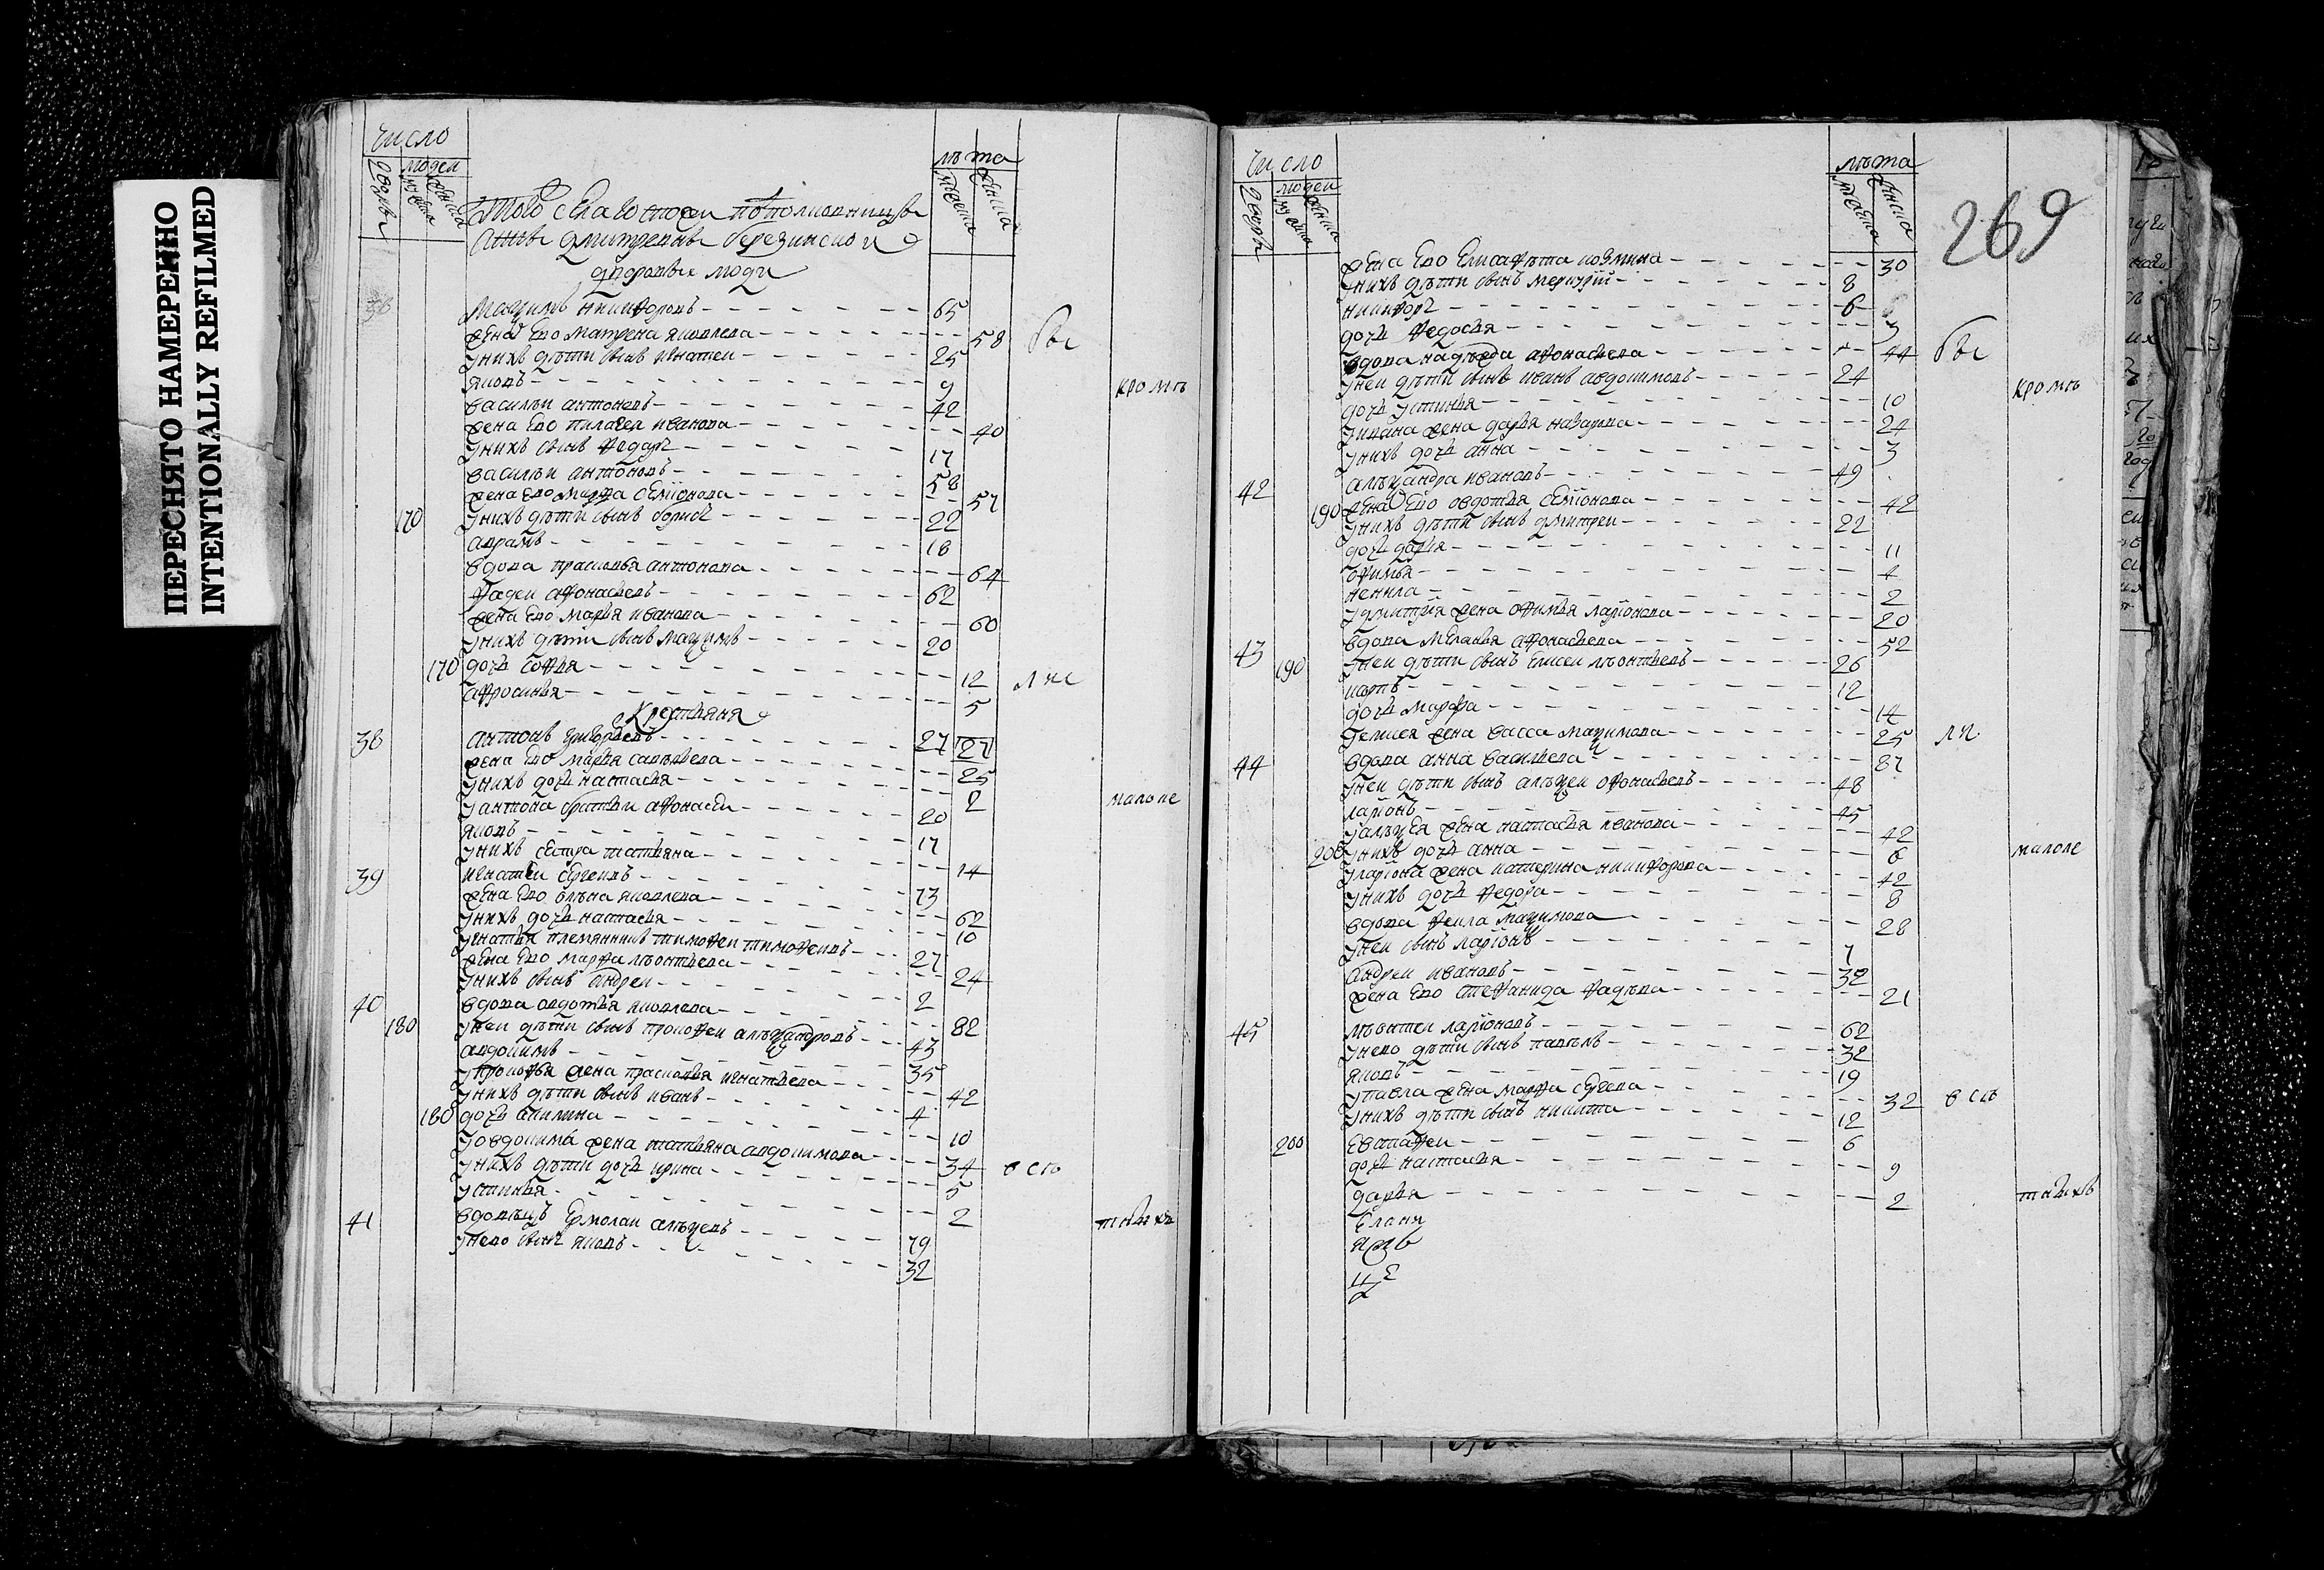 ПЕРЕСНЯТО НАМЕРЕННО
INTENTIONALLY REFILMED
число
людеи
лѣта
того села госпожи подполковницы
Анны дмитревны березинскои
дворовые люди
38 Мазимъ никифоровъ 65
жена ево матрена яковлева 58 бы
у нихъ дѣти сынъ игнатеи 25
яковъ 9 кромѣ
василѣи антоновъ 42
жена ево пилагея иванова 40
у нихъ сынъ федоръ 17
василѣи антоновъ 58
жена ево марфа семионова 57
170 у нихъ дѣти сынъ борисъ 22
аврамъ 18
вдова прасковья антонова 64
фадеи афонасьевъ 62
жена ево марья иванова 60
у нихъ дѣти сынъ мазимъ 20
170 дочь софья 12 лис
афросинья 5
Крестьяня
38 антонъ григорьевъ 27 27
жена ево марья савельева 25
у нихъ дочь настасья 2
у антона братьи афонасеи 20 малоле
яковъ 17
у нихъ сестра татьяна 14
39 игнатеи сергеивъ 73
жена ево олѣна яковлева 62
у нихъ дочь настасья 10
у игнатья племянникъ тимофеи тимофеивъ 27
жена ево марфа лѣонтьева 24
у нихъ сынъ андреи 2
40 вдова авдотья яковлева 82
180 у неи дѣти сынъ прокофеи алѣѯандровъ 43
авдокимъ 35
у прокофья жена прасковья игнатьева 42
у нихъ дѣти сынъ иванъ 4
180 дочь акилина 10
у овдокима жена татьяна авдокимова 34 всю
у нихъ дѣти дочь ирина 5
устинья 2
41 вдовѣцъ ермолаи алѣѯеевъ 79
у нево сынъ яковъ 32
число
людеи
лѣта
269
жена ево елисафѣта козмина 30
у нихъ дѣти сынъ меркурiи 8
никифоръ 6
дочь федосья 3
вдова надѣжда афонасьева 44 бы
у неи дѣти сынъ иванъ авдокимовъ 24 кромѣ
дочь устинья 10
у ивана жена дарья назарова 24
у нихъ дочь анна 3
42 алѣѯандра ивановъ 49
190 жена ево овдотья семiонова 42
у нихъ дѣти сынъ дмитреи 22
дочь дарья 11
офимья 4
ненила 2
у дмитрiя жена офимья ларiонова 20
43 вдова меланья афонасьева 52
190 у неи дѣти сынъ елисеи лѣонтьевъ 26
карпъ 12
дочь марфа 14
у елисея жена васса мазимова 25 ли
44 вдова анна васильева 87
у неи дѣти сынъ алѣѯеи офонасьевъ 48
ларiонъ 45
у алѣѯея жена настасья иванова 42
200 у нихъ дочь анна 6 малоле
у ларiона жена катерина никифорова 42
у нихъ дочь федора 8
вдова фекла мазимова 28
у неи сынъ ларiонъ 7
андреи ивановъ 32
жена ево стефанида фадѣва 21
45 лѣонтеи ларiоновъ 62
у нево дѣти сынъ павѣлъ 32
яковъ 19
у павла жена марфа сергева 32 всю
у нихъ дѣти сынъ никита 12
200 евстафеи 6
дочь настасья 9
дарья 2 такихъ